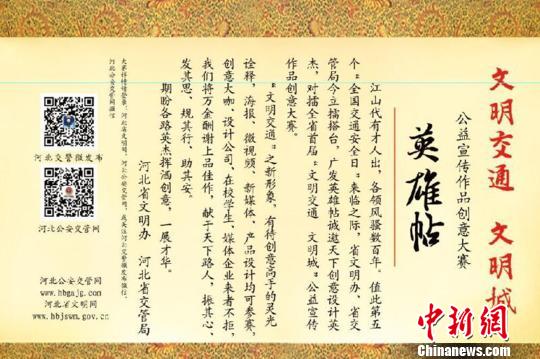 文明交通 文明城
公益宣传作品创意大赛
英雄帖
江山代有才人出，各领风骚数百年。值此第五
个“全国交通安全日”来临之际，省文明办、省交
管局今立擂搭台，广发英雄帖诚邀天下创意设计英
杰，对擂全省首届“文明交通 文明城”公益宣传
作品创意大赛。
“文明交通”之新形象，有待创意高手的灵光
诠释，海报、微视频、新媒体、产品设计均可参赛，
创意大咖、设计公司、在校学生、媒体企业来者不拒，
我们将万金酬谢上品佳作，献于天下路人，振其心、
发其思、规其行、助其安。
期盼各路英杰挥洒创意，一展才华。
河北省文明办 河北省交管局
河北公安交管网微信
河北交警微发布
河北公安交管网
河北公安交管网
www.hbgajg.com
河北省文明网
www.hbjswm.gov.cn
中新网
Chinanews.com